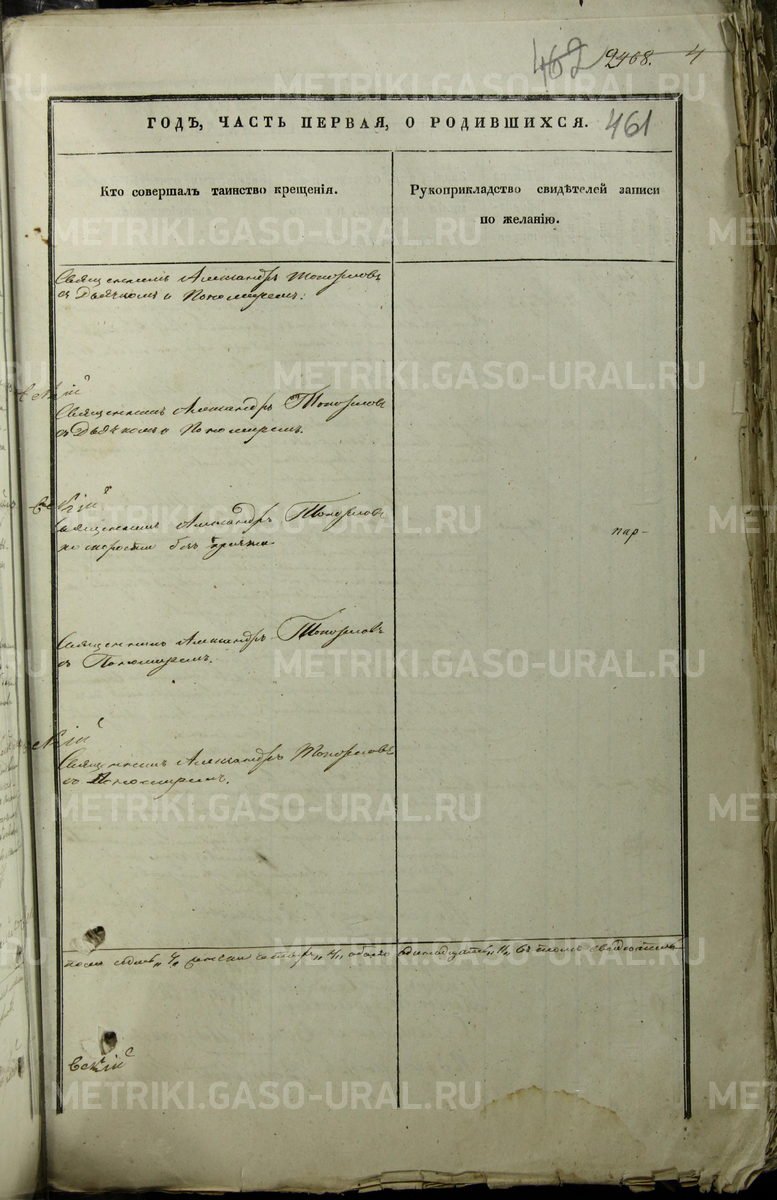 462 2468. 4
ГОДЪ, ЧАСТЬ ПЕРВАЯ, О РОДИВШИХСЯ.
461
Кто совершалъ таинство крещенія.
Рукоприкладство свидѣтелей записи
по желанію.
Священникъ Александръ Топорковъ
съ Дьячкомъ и Пономаремъ.
вскій
Священникъ Александръ Топорковъ
съ Дьячкомъ и Пономаремъ.
вскій
Священникъ Александръ Топорковъ
по скорости безъ причта
пар-
Священникъ Александръ Топорковъ
съ Пономаремъ.
вскій
Священникъ Александръ Топорковъ
съ Пономаремъ.
пола седмь „7„ женска четыре „4„ обоего одинадцать „11„ въ томъ свидѣтель
вскій
METRIKI.GASO-URAL.RU